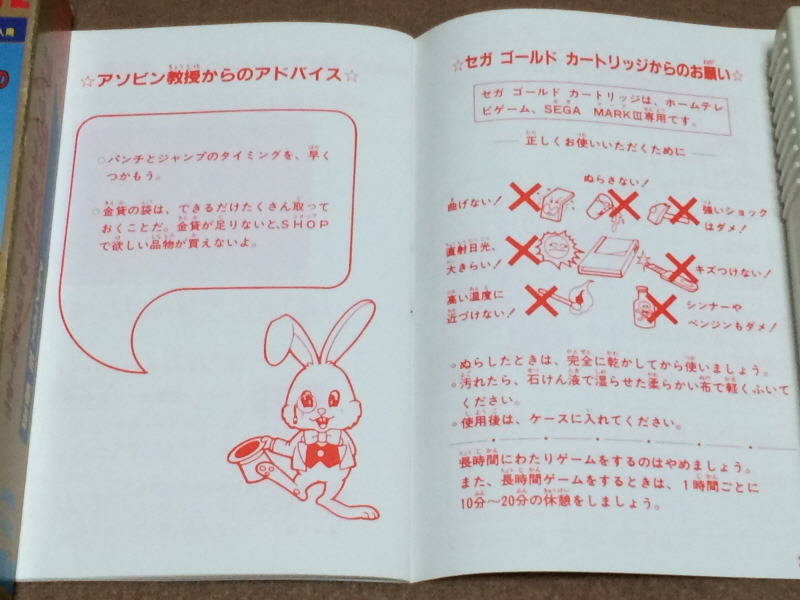 ☆アソビン教授からのアドバイス☆
○パンチとジャンプのタイミングを、早く
つかもう。
○金貨の袋は、できるだけたくさん取って
おくことだ。金貨が足りないと、SHOP
で欲しい品物が買えないよ。
☆セガ ゴールド カートリッジからのお願い☆
セガ ゴールド カートリッジは、ホームテレ
ビゲーム、SEGA MARKⅢ専用です。
正しくお使いいただくために
曲げない!
ぬらさない!
強いショック
はダメ!
直射日光、
大きらい!
キズつけない!
高い温度に
近づけない!
シンナーや
ベンジンもダメ!
○ぬらしたときは、完全に乾かしてから使いましょう。
○汚れたら、石けん液で湿らせた柔らかい布で軽くふいて
ください。
○使用後は、ケースに入れてください。
長時間にわたりゲームをするのはやめましょう。
また、長時間ゲームをするときは、1時間ごとに
10分～20分の休憩をしましょう。